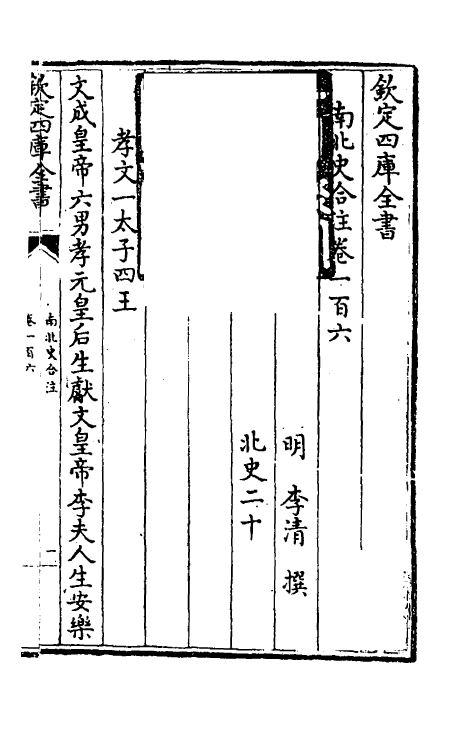 欽定四庫全書
南北史合注卷一百六
明 李清 撰
北史二十
孝文一太子四王
文成皇帝六男孝元皇后生獻文皇帝李夫人生安樂
欽定四庫全書
南北史合注
卷一百六
一